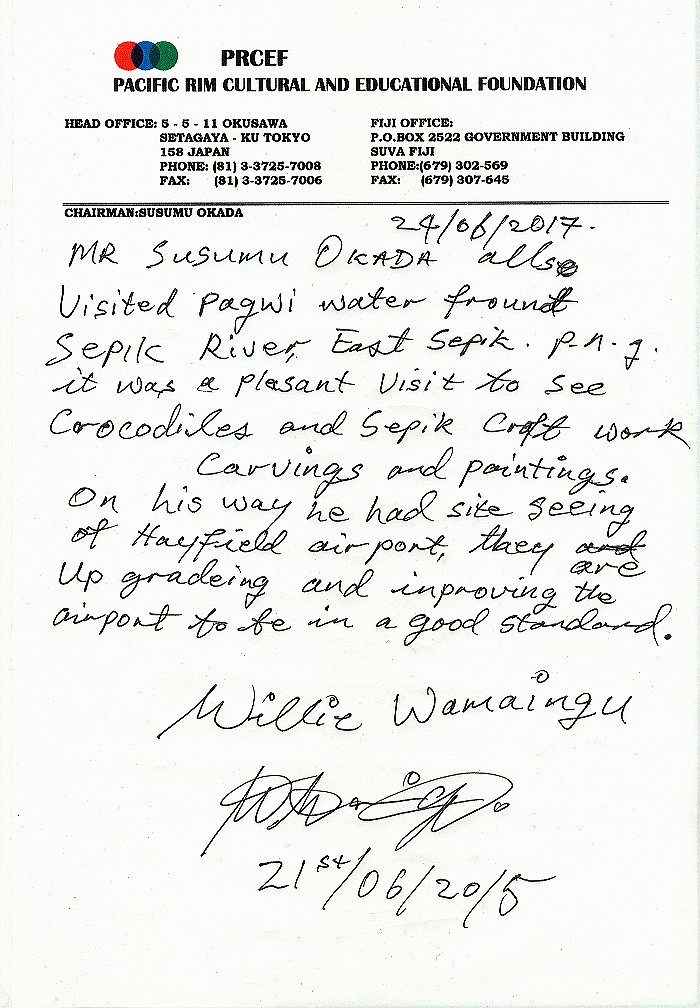 PRCEF
PACIFIC RIM CULTURAL AND EDUCATIONAL FOUNDATION
HEAD OFFICE: 5 - 5 - 11 OKUSAWA
SETAGAYA - KU TOKYO
158 JAPAN
PHONE: (81) 3-3725-7008
FAX: (81) 3-3725-7006
FIJI OFFICE:
P.O.BOX 2522 GOVERNMENT BUILDING
SUVA FIJI
PHONE:(679) 302-569
FAX: (679) 307-645
CHAIRMAN:SUSUMU OKADA
24/06/2017.
MR SUSUMU OKADA allso
Visited Pagwi water frount
Sepik River, East Sepik. P.n.g.
it was a pleasant Visit to see
Crocodiles and Sepik Craft work
Carvings and paintings.
On his way he had site seeing
of Hayfield airport, they and are
Up gradeing and inproving the
airport to be in a good standard.
Willie Wamaingu
21st/06/2015